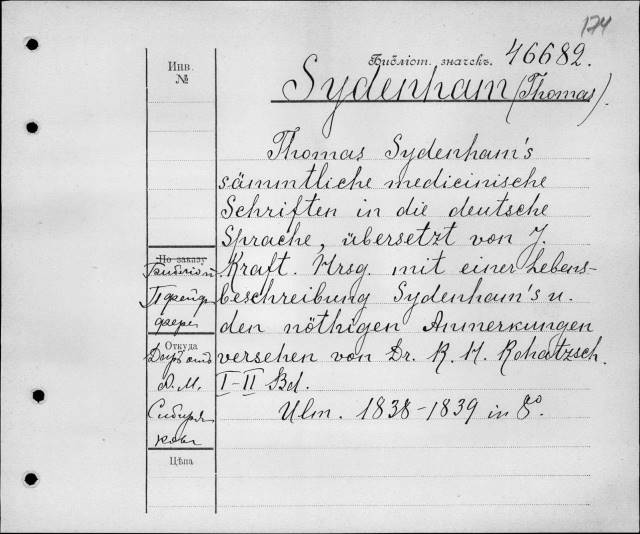 174
Библіот. значекъ. 46682.
Sydenham (Thomas).
Инв.
№
Thomas Sydenham's
sämmtliche medicinische
Schriften in die deutsche
Sprache, übersetzt von J.
Kraft. Hrsg. mit einer Lebens-
beschreibung Sydenham's u.
den nöthigen Anmerkungen
versehen von Dr. R. H. Rohatzsch.
I-II Bd.
Ulm. 1838-1839 in 8º.
По заказу
Библіот.
Пфейф
фера
Откуда
Даръ отъ
А. М.
Сибиря
кова
Цѣна